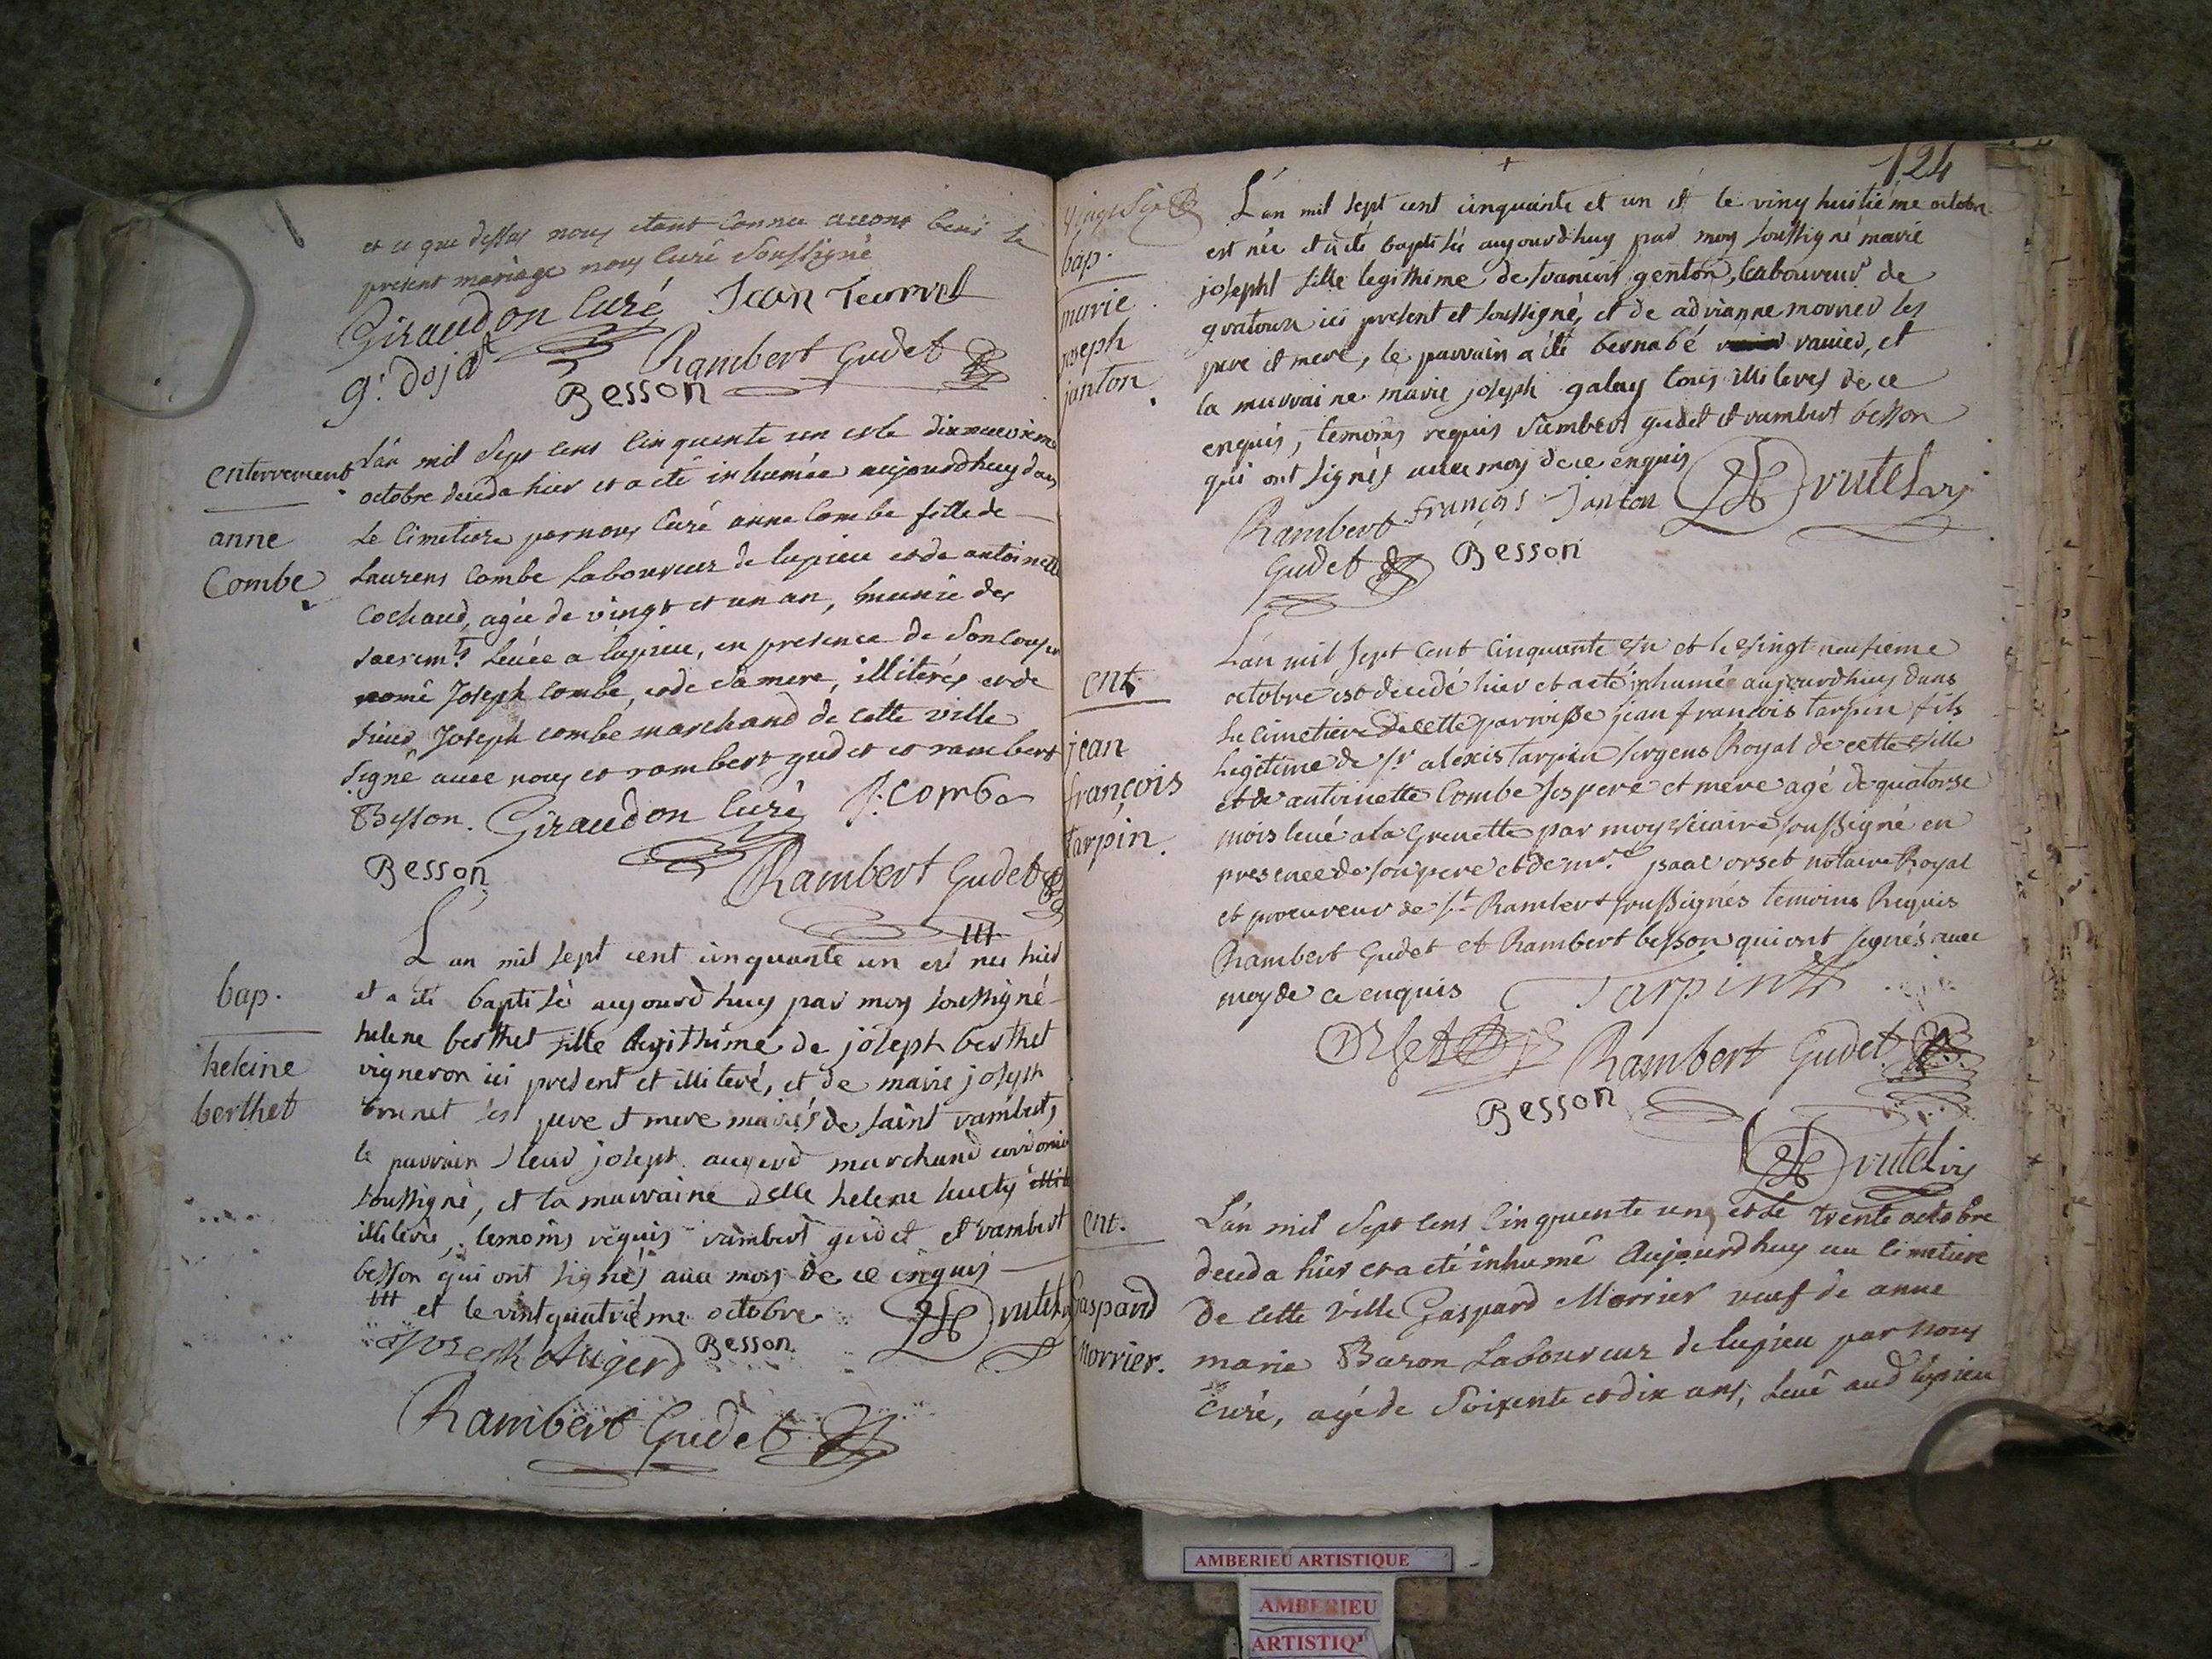 et ce que dessus nous etant connu avons beni le
present mariage nous Curé Soussigné
Giraudon Curé Jean
Rambert Gudet
Besson
enterrement
anne
Combe
L'an mil Sept cens Cinquente un et le dixneuvieme
octobre deceda hier et a eté inhumée aujourdhuy dans
Le Cimetiere par nous Curé anne Combe fille de
Laurens Combe Laboureur de lupieu et de antoinette
Cochaud, agée de vingt et un an, munie des
sacremts. Levée a lupieu, en presence de Son cousin
nomé Joseph Combe, et de Sa mere, illiterés et de
sieur Joseph combe marchand de Cette ville
Signé avec nous et rambert gudet et rambert
Besson. Giraudon Curé J. Combe
Besson
Rambert Gudet
bap.
heleine
berthet
L'an mil sept cent cinquante un est née hier
et a eté baptisée aujourd'huy par moy soussigné
helene berthet fille legithime de joseph berthet
vigneron ici present et illiteré, et de marie joseph
brunet ses pere et mere mariés de saint rambert,
le parrain sieur joseph augerd marchand cordonnier
soussigné, et la marraine delle helene
illiterée, temoins requis rambert gudet et rambert
besson qui ont signés avec moy de ce enquis
et le vintquatrieme octobre
Joseph Augerd Besson
Rambert Gudet
124
bap.
marie
joseph
janton
L'an mil sept cent cinquante et un et le vingt huitiéme octobre
est née et a eté baptisée aujourdhuy par moy soussigné marie
joseph fille legithime de francois genton, Laboureur de
gratoux ici present et soussigné, et de adrianne morrier ses
pere et mere, le parrain a eté bernabé ravier, et
la marraine marie joseph galay tous illiterés de ce
enquis, temoins requis rambert gudet et rambert besson
qui ont signés avec moy de ce enquis
Rambert françois Janton
Gudet Besson
ent.
jean
françois
tarpin.
L'an mil sept cent Cinquante un et le vingt neufieme
octobre est decedé hier et a eté inhumé aujourdhuy dans
le cimetiere de cette parroisse jean francois tarpin fils
legitime de sr alexis tarpin sergent Royal de cette ville
et de antoinette Combe ses pere et mere agé de quatorse
mois levé a la Grenette par moy vicaire soussigné en
presence de son pere et de mre. ysaac orset notaire Royal
et procureur de st. Rambert soussignés temoins Requis
Rambert Gudet et Rambert besson qui ont signés avec
moy de ce enquis Tarpin
Orset Rambert Gudet
Besson
ent.
Gaspard
Morrier.
L'an mil Sept cens Cinquente un, et le trente octobre
deceda hier et a eté inhumé Aujourdhuy au Cimetiere
de Cette Ville Gaspard Morrier veuf de anne
marie Baron Laboureur de lupieu par nous
Curé, agé de Soixente et dix ans, Levé aud lupieu
AMBERIEU ARTISTIQUE
AMBERIEU
ARTISTIQ